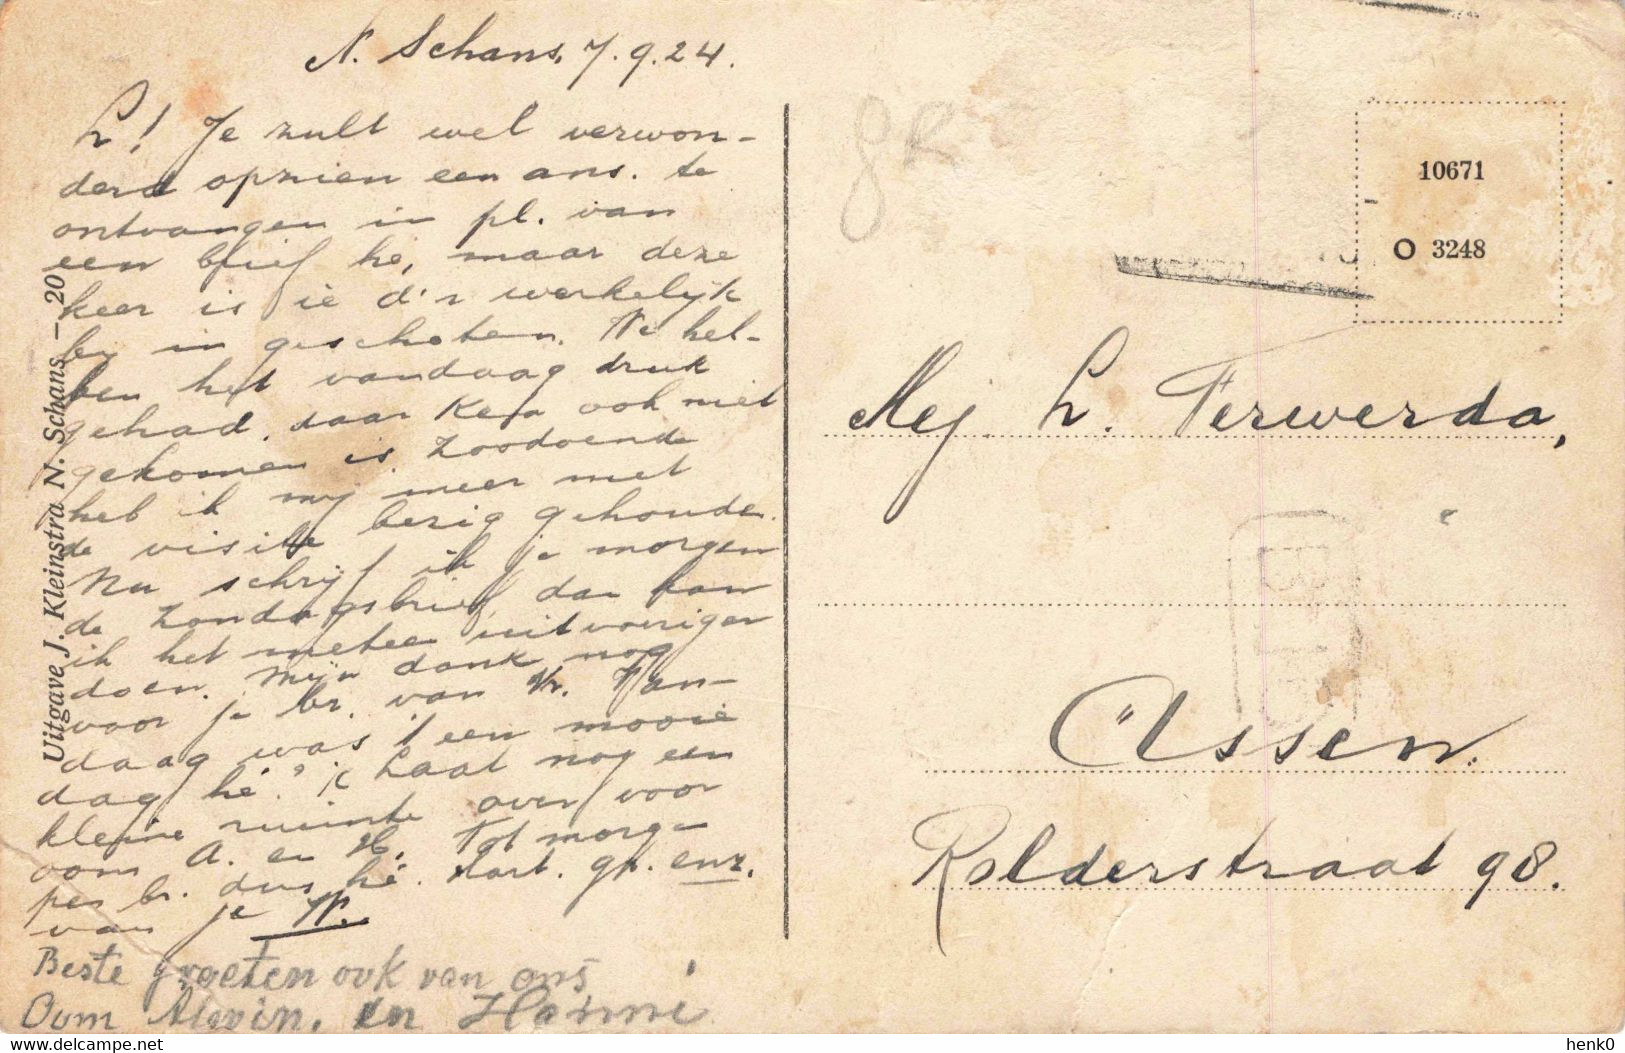 N. Schans, 7.9.24.
L! Je zult wel verwon-
derd opzien een ans. te
ontvangen in pl. van
een brief hè, maar deze
keer is ie d'r werkelijk
bij in geschoten. We heb-
ben het vandaag druk
gehad, daar Kea ook niet
gekomen is. Zoodoende
heb ik mij meer met
de visite bezig gehouden.
Nu schrijf ik je morgen
de Zondagsbrief, dan kan
ik het meteen uitvoeriger
doen. Mijn dank nog
voor je br. van Vr. Van-
daag was 't een mooie
dag hè? Ik laat nog een
kleine ruimte over voor
oom A. en H. Tot morgen
per br. dus hè. Hart. gr. enz.
van je W.
Beste groeten ook van ons
Oom Alwin, en Hanni
Uitgave J. Kleinstra N. Schans — 20
10671
O 3248
Mej. L. Ferwerda,
Assen.
Rolderstraat 98.
delcampe.net
henk0